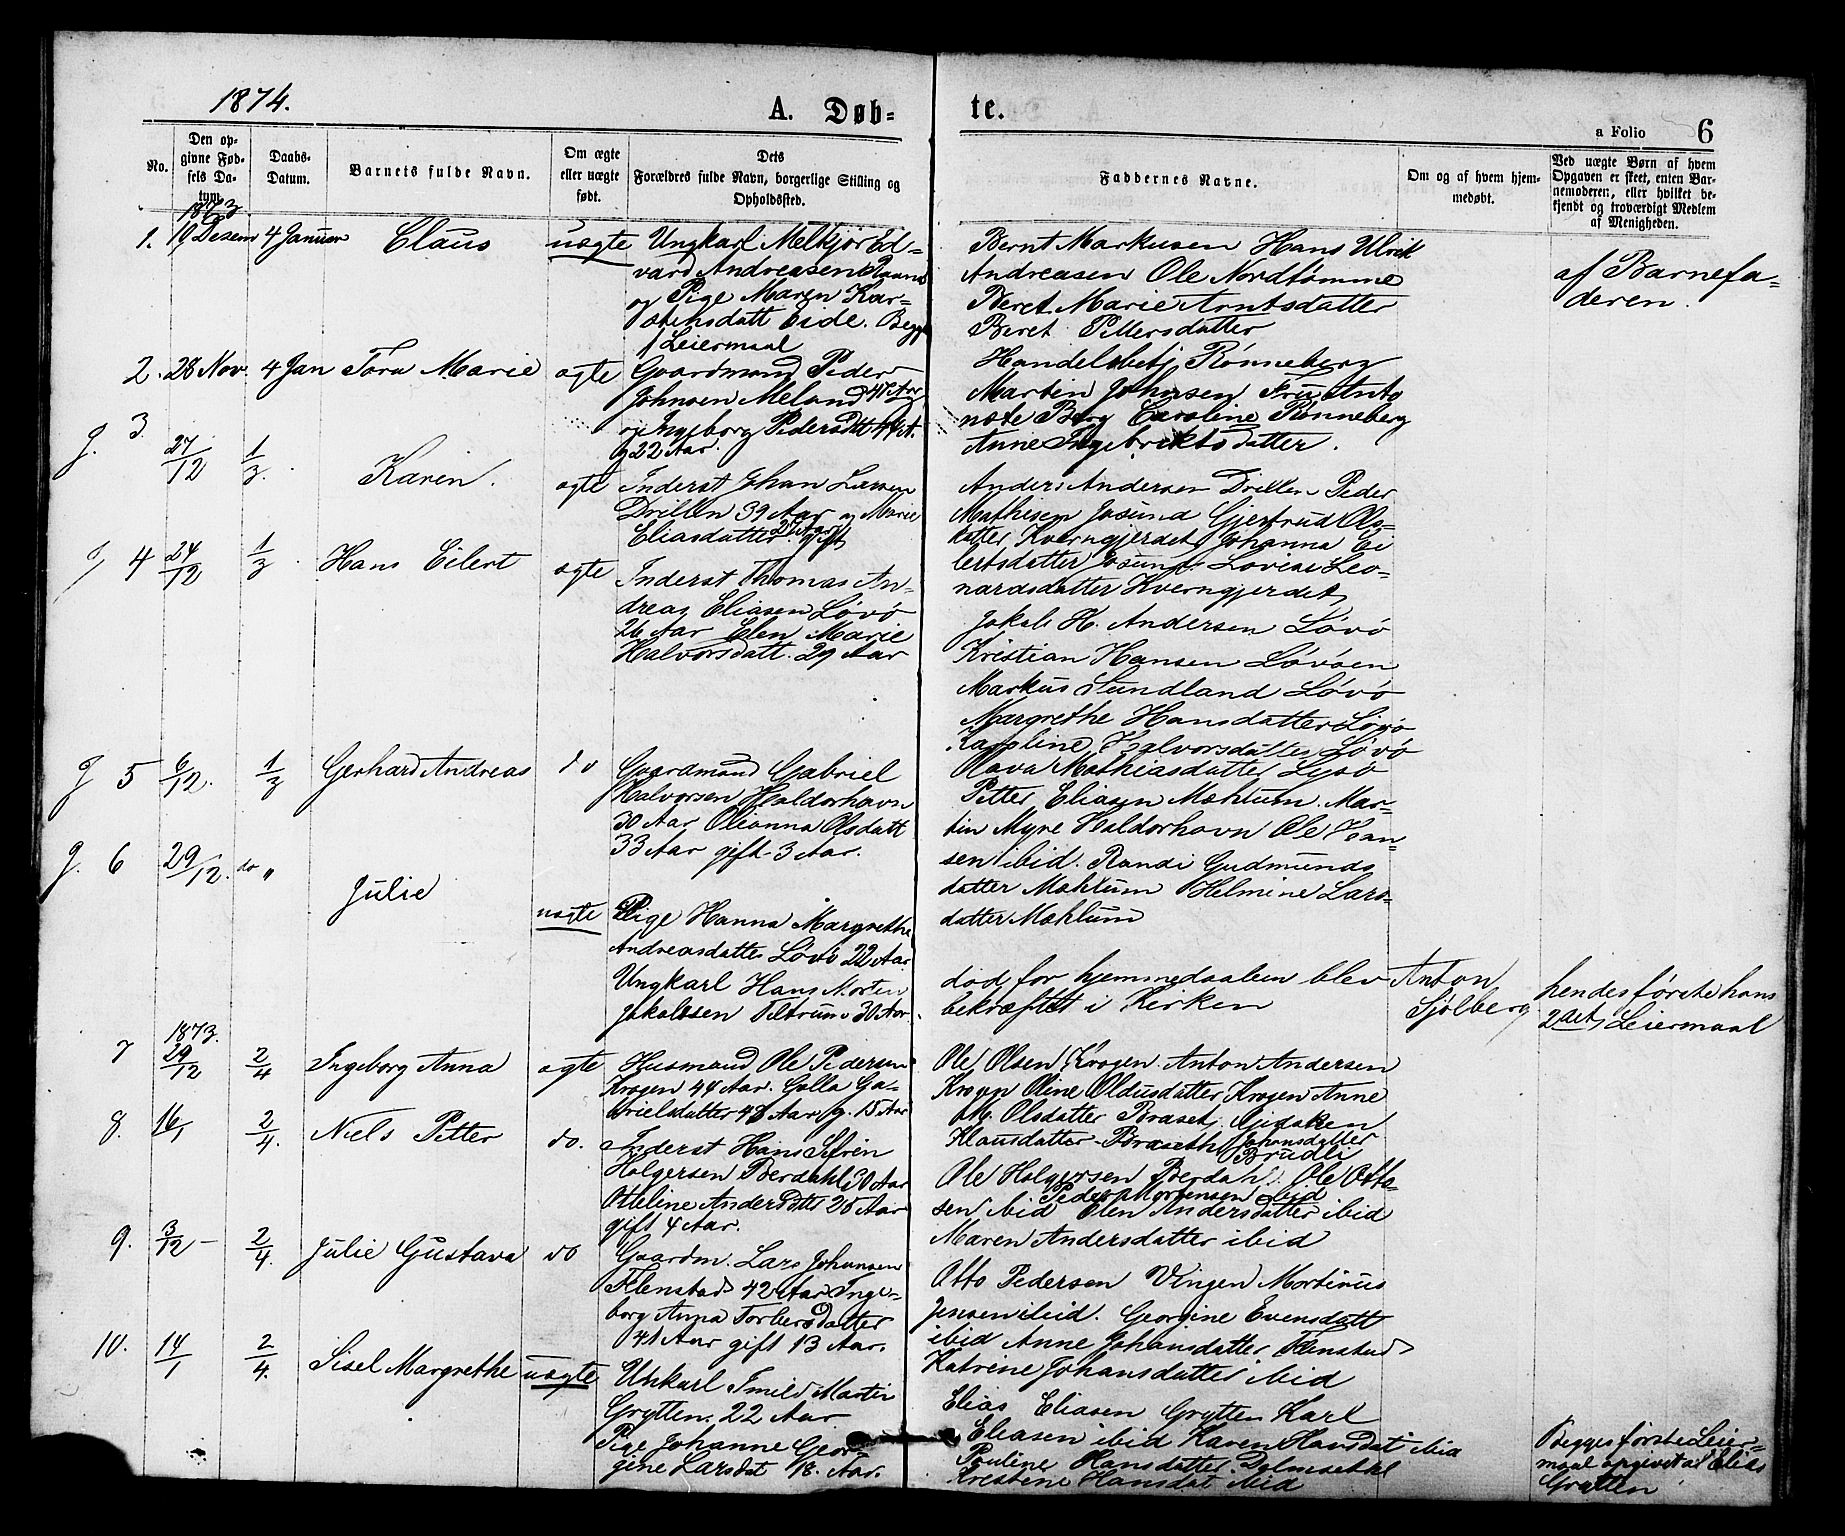 1874.
A. Døb-
te.
a Folio 6
No.
Den op-
givne Fød-
sels Da-
tum.
Daabs-
Datum.
Barnets fulde Navn.
Om ægte
eller uægte
født.
Dets
Forældres fulde Navn, borgerlige Stilling og
Opholdssted.
Faddernes Navne.
Om og af hvem hjem-
medøbt.
Ved uægte Børn af hvem
Opgaven er skeet, enten Bar-
nemoderen, eller hvilket be-
kjendt og troværdigt Medlem
af Menigheden.
1873
1. 19 Desem 4 Januar Claus uægte
Ungkarl Melkjør Ed-
vard Andreasen
og Pige Maren
Eide. Begges
Leiermaal
Bernt Markusen Hans Ulrik
Andreasen Ole Nordtømme
Beret Marie Arntsdatter
Beret Pettersdatter
af Barnefa-
deren.
2. 28 Nov. 4 Jan Tora Marie ægte
Gaardmand Peder
Johnsen Meland 47 Aar
og Ingeborg Pedersdtt
g 22 Aar.
Handelsbetj Rønneberg
Martin Johnsen Fru Anto
nete Berg Caroline Rønneberg
Anne Ingebriktsdatter.
g. 3. 27/12 1/3. Karen. ægte
Inderst Johan Larsen
Drillen 39 Aar og Marie
Eliasdatter 27 Aar gift
Anders Andersen Drillen Peder
Mathisen Jøsund Gjertrud Ols-
datter Kverngjerdet Johanna Ei
lertsdatter Jøsund Lovise Leo-
nardsdatter Kverngjerdet
g 4 24/12 1/3 Hans Eilert ægte
Inderst Thomas An-
dreas Eliasen Løvø
26 Aar Elen Marie
Halvorsdatt. 29 Aar
Jakob H. Andersen Løvø
Kristian Hansen Løvøen
Markus Sundland Løvø
Margrethe Hansdatter Løvø
Karoline Halvorsdatter Løvø
g 5 6/12. 1/3 Gerhard Andreas do
Gaardmand Gabriel
Halvorsen Haldorhavn
30 Aar Olianna Olsdatt
33 Aar gift 3 Aar.
Olava Mathiasdatter Lysø
Petter Eliasen Mæhlum. Mar-
tin Myre Haldorhavn Ole Han-
sen ibid. Randi Gudmunds
datter Mæhlum Helmine Lars-
datter Mæhlum
g. 6 29/12. do " Julie uægte
Pige Hanna Margrethe
Andreasdatter Løvø 22 Aar
Ungkarl Hans Morten
Jakobsen 30 Aar.
død, for hjemmedaaben blev
bekræftet i Kirken
Anton
Sjølberg
hendes første hans
2det Leiermaal
1873.
7 29/12 2/4 Ingeborg Anna ægte
Husmand Ole Pedersen
Krogen 44 Aar. Golla Ga-
brielsdatter 43 Aar g. 15 Aar
Ole Olsen Krogen. Anton Andersen
Krogen Oline Oldusdatter Krogen Anne
M. Olsdatter Braset,
Klausdatter Braseth Johansdatter
Brudli
8. 16/1 2/4. Niels Petter do.
Inderst Hans Sefrin
Holgersen Berdahl 30 Aar
Otteline Andersdttr 25 Aar
gift 4 Aar.
Ole Holgersen Berdahl. Ole Otte-
Peder Mortensen ibid
sen ibid Elen Andersdatter ibid
Maren Andersdatter ibid
9. 3/12 - 2/4. Julie Gustava do
Gaardm. Lars Johansen
Flenstad 42 Aar Inge-
borg Anna Torbersdatter
41 Aar gift 13 Aar.
Otto Pedersen Vingen Mortinus
Jensen ibid. Georgine Evensdatt
ibid Anne Johansdatter Flenstad
Katrine Johansdatter ibid
10. 14/1 2/4. Sisel Margrethe uægte
Unkarl Emild Martin
Grytten. 22 Aar
Pige Johanne Geor-
gine Larsdat 18. Aar.
Elias Eliasen Grytten Karl
Eliasen ibid Karen Hansdat ibid
Pauline Hansdatter
Kristine Hansdat ibid
Begges første Leier-
maal opgivet af Elias
Grytten